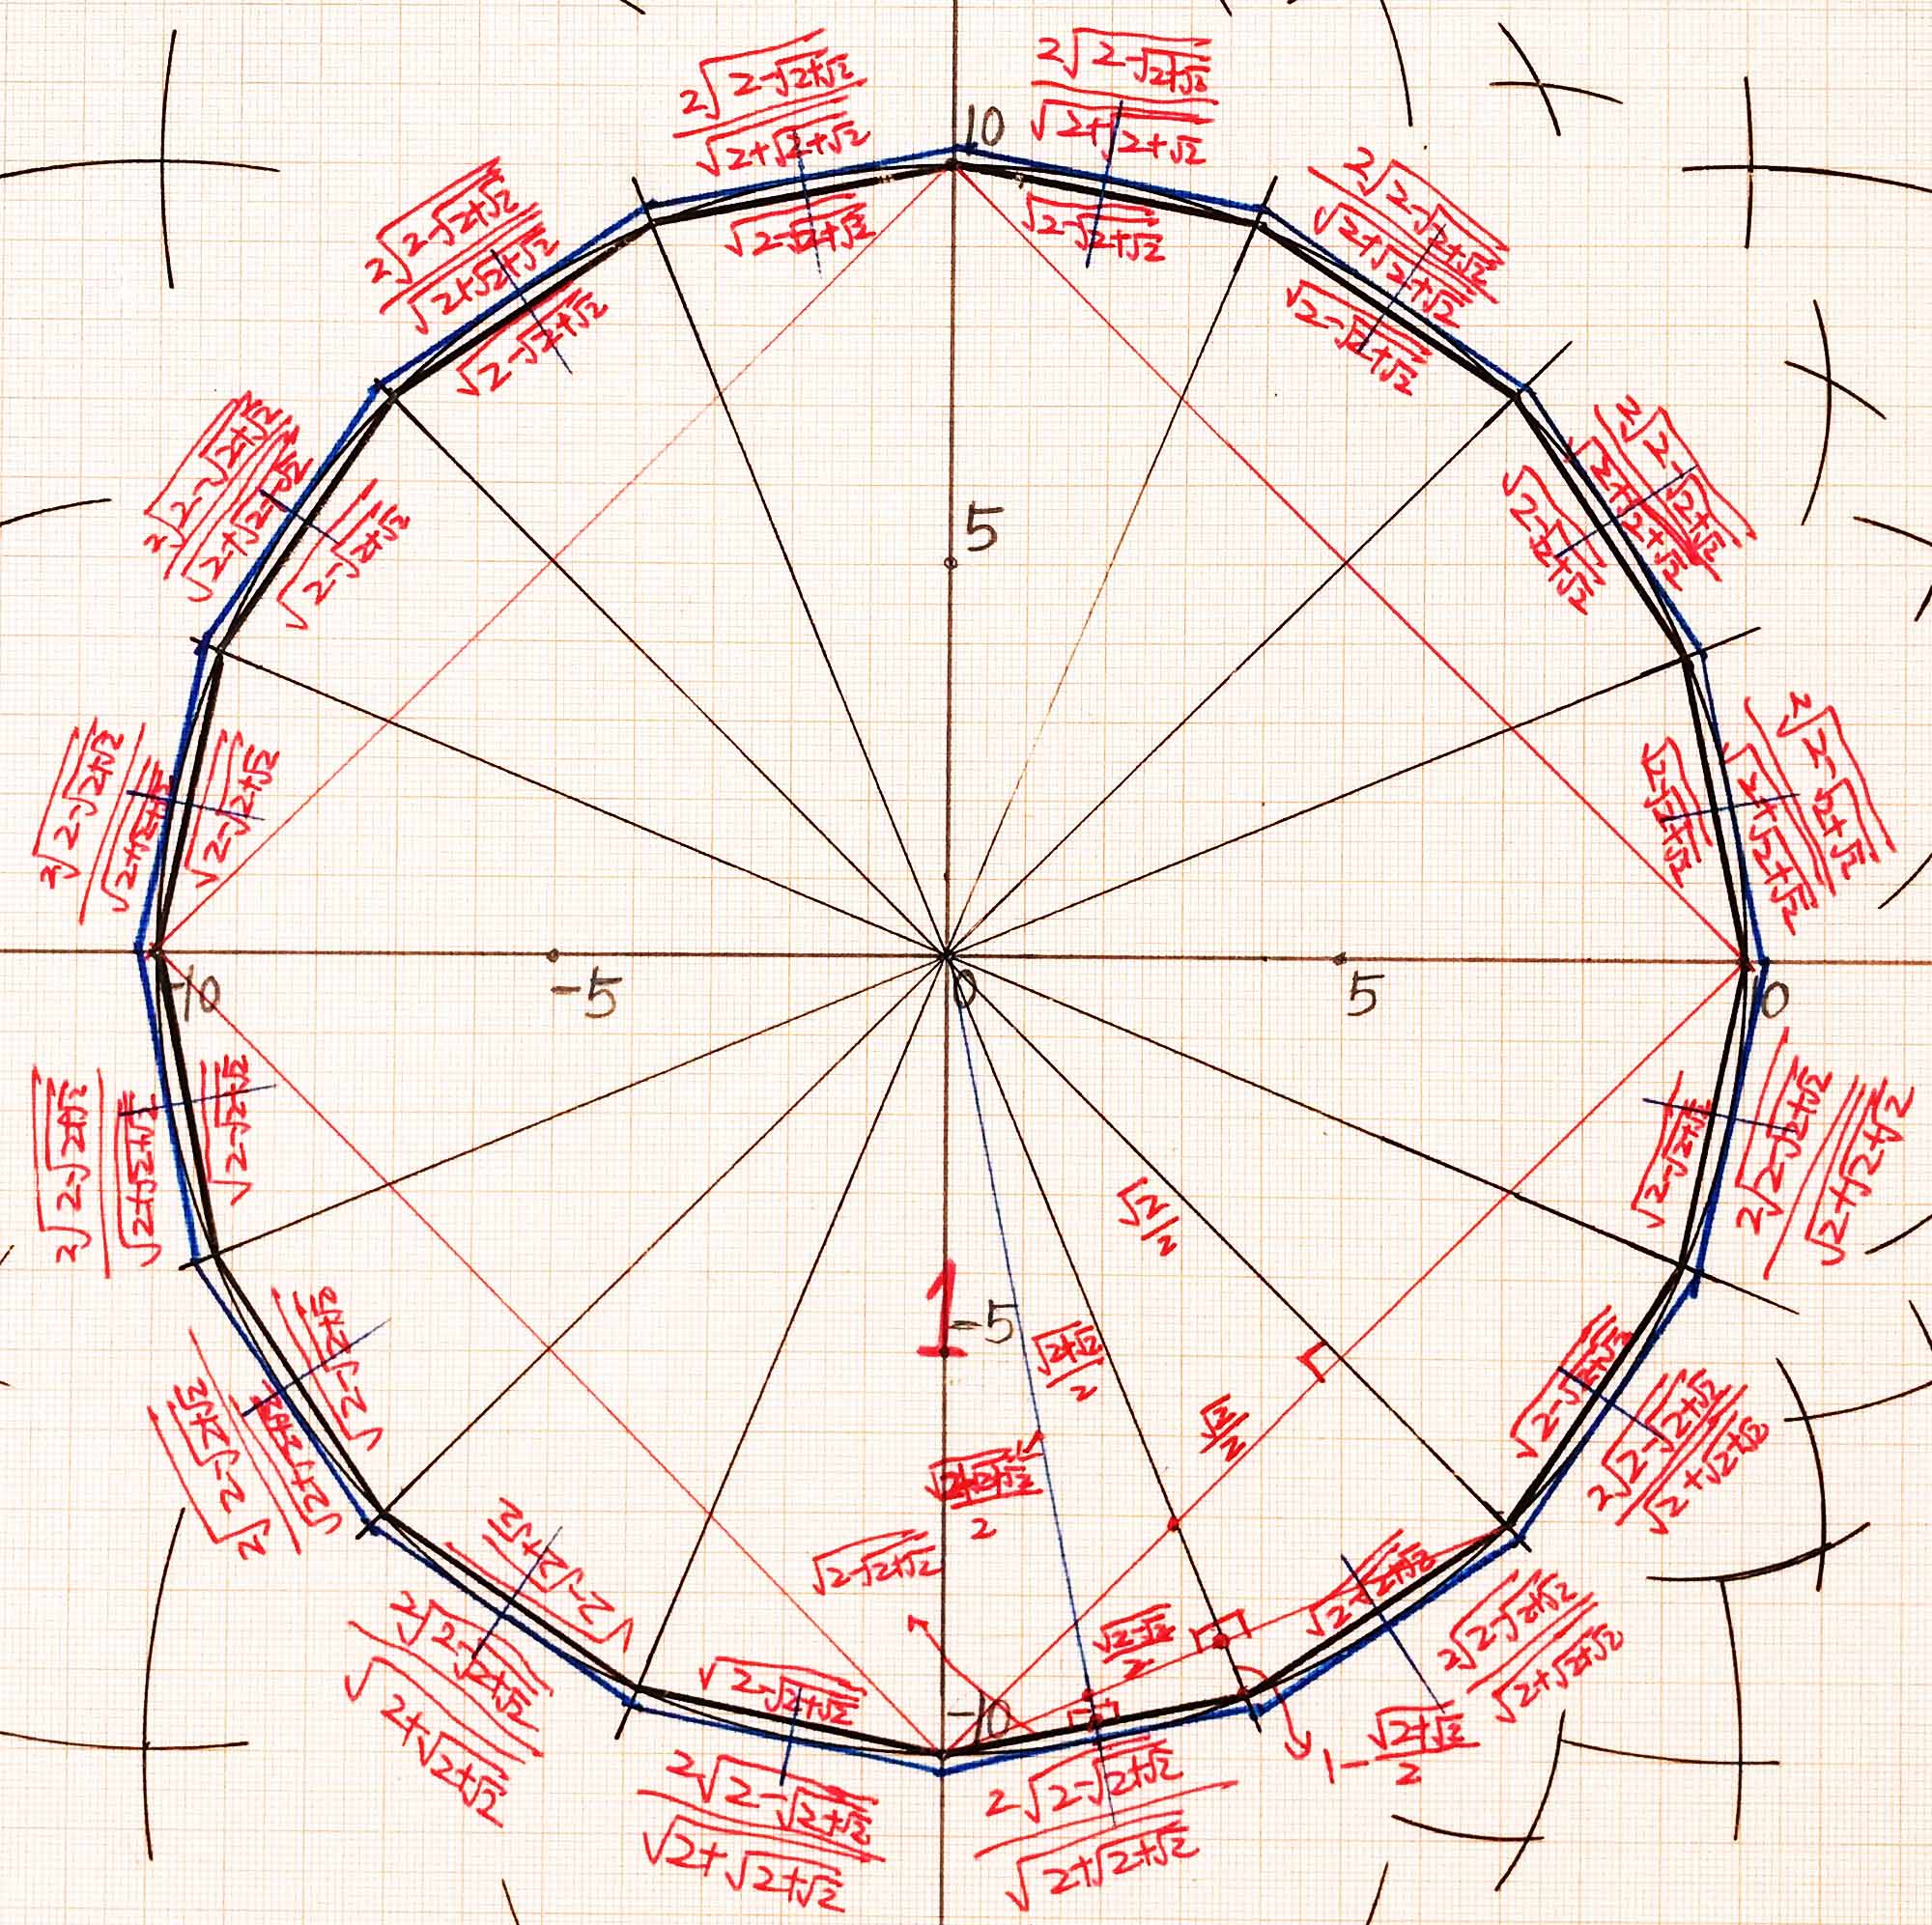 2√(2-√(2+√2))
√(2+√(2+√2))
2√(2-√(2+√2))
√(2+√(2+√2))
10
√(2-√(2+√2))
√(2-√(2+√2))
2√(2-√(2+√2))
√(2+√(2+√2))
√(2-√(2+√2))
2√(2-√(2+√2))
√(2+√(2+√2))
√(2-√(2+√2))
2√(2-√(2+√2))
√(2+√(2+√2))
√(2-√(2+√2))
2√(2-√(2+√2))
√(2+√(2+√2))
√(2-√(2+√2))
5
2√(2-√(2+√2))
√(2+√(2+√2))
√(2-√(2+√2))
√(2-√(2+√2))
2√(2-√(2+√2))
√(2+√(2+√2))
-10
-5
0
5
10
2√(2-√(2+√2))
√(2+√(2+√2))
√(2-√(2+√2))
√(2-√(2+√2))
2√(2-√(2+√2))
√(2+√(2+√2))
√2/2
1
-5
√(2+√2)/2
√2/2
2√(2-√(2+√2))
√(2+√(2+√2))
√(2-√(2+√2))
√(2-√(2+√2))
2√(2-√(2+√2))
√(2+√(2+√2))
√(2+√(2+√2))/2
√(2-√(2+√2))
√(2-√(2+√2))
√(2-√2)/2
√(2-√(2+√2))
2√(2-√(2+√2))
√(2+√(2+√2))
2√(2-√(2+√2))
√(2+√(2+√2))
√(2-√(2+√2))
-10
1-√(2+√2)/2
2√(2-√(2+√2))
√(2+√(2+√2))
2√(2-√(2+√2))
√(2+√(2+√2))